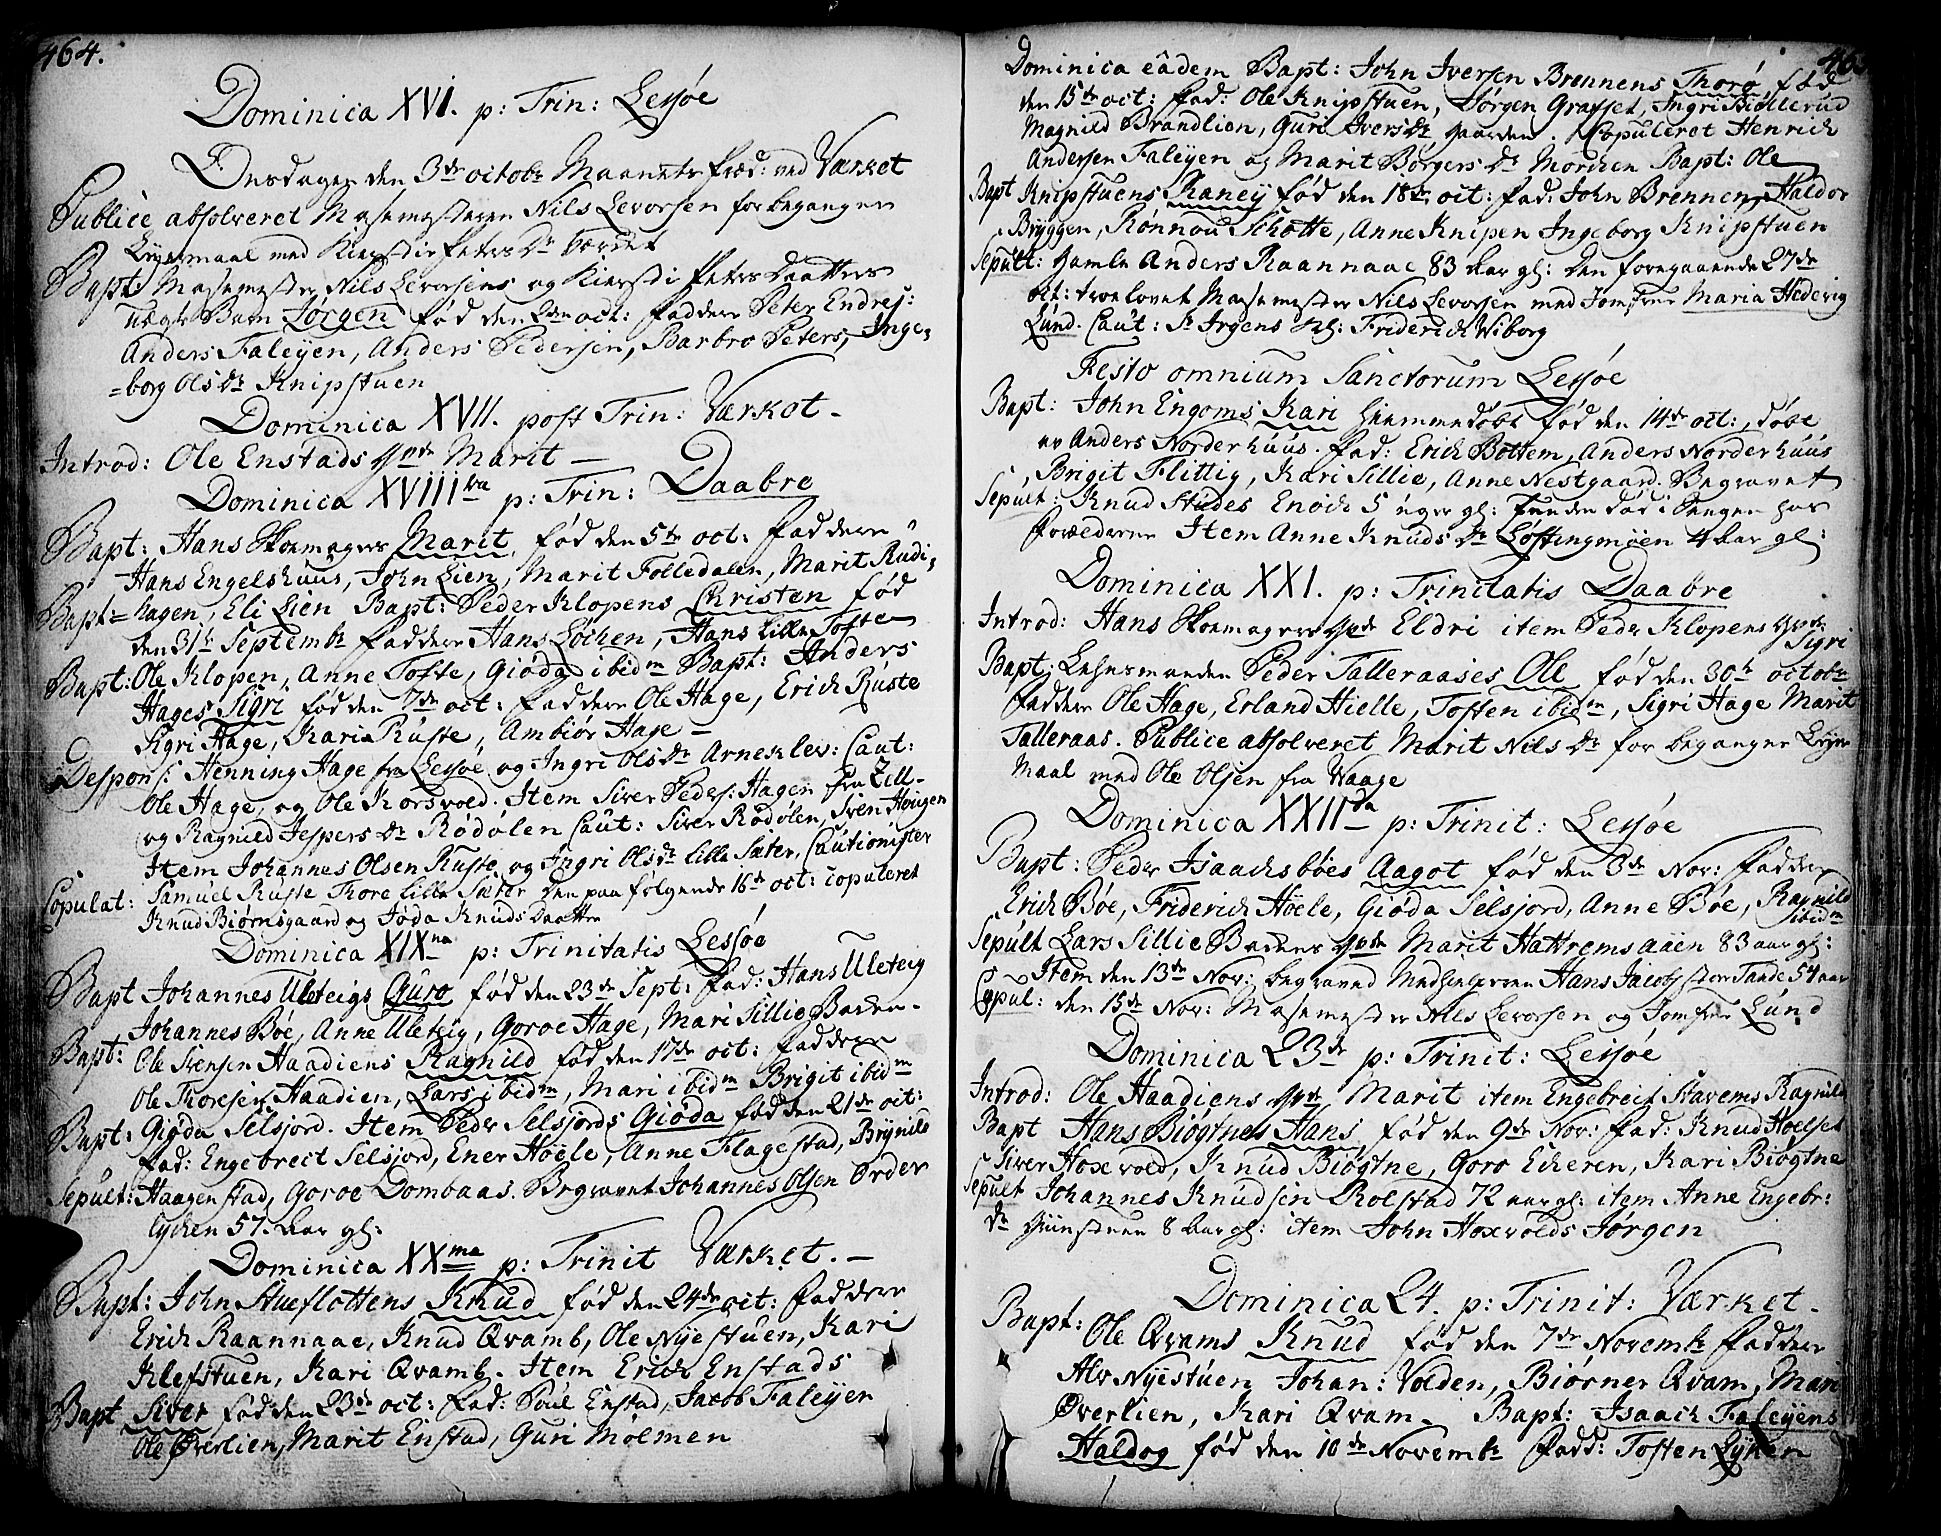 464.
Dominica XVI. p: Trin: Lessøe
Onsdagen den 3de octobr Maanets Præd: ved Værket
Publice absolveret Masemesteren Nils Levorsen for begangen
Leyermaal med Kiersti Peters Dr Værket
Bapt: Masemester Nils Levorsens og Kiersti Peters Daatters
uægte Barn Jørgen fød den 2den oct: Faddere Peter Endres:
Anders Faleyen, Anders Pedersen, Barbro Peters, Inge,
=borg Ols Dr Knipstuen
Dominica XVII. post Trin: Værket -
Introd: Ole Enstads Marit -
Dominica XVIIItva p: Trin: Daabre
Bapt: Hans Skomagers Marit fød den 5te oct: Faddere
Hans Engelshuus, John Lien, Marit Folledalen, Marit Rudi,
Bapt= hagen, Eli Lien Bapt: Peder Klopens Christen fød
den 31te Septembr Faddere Hans Løchen, Hans Lille Tofte
Bapt: Ole Klopen, Anne Tofte, Giøda ibidm Bapt: Anders
Hages Sigri fød den 7de oct: Faddere Ole Hage, Erich Rüste
Sigri Hage, Kari Rüste, Ambiør Hage -
Despons: Henning Hage fra Lessøe og Ingri Ols Dr Arneklev: Caut:
Ole Hage, og Ole Korsvold. Item Siver Peders: Hagen fra
og Ragnild Jespers Dr Rødølen Caut: Siver Rødølen, Sven Hougen
Item Johannes Olsen Rüste og Ingri Ols Dr Lille Sæter, Cautionister
Copulat: Samuel Rüste Thore Lille Sæter den paa følgende 16de oct: copuleret
Knud Biørnsgaard og Jøda Knuds Daatter
Dominica XIXna p: Trinitatis Lessøe
Bapt Johannes Uleteigs Guro fød den 23de Sept: Fad: Hans Uleteig
Johannes Bøe, Anne Uleteig, Goroe Hage, Mari Sillie Baden-
Bapt: Ole Svensen Haadiens Ragnild fød den 17de oct: Faddere
Ole Thoresen Haadien, Lars ibidm, Mari ibidm Brigit ibidm
Bapt: Giøda Selsjord. Item Peder Selsjords Giøda fød den 21de oct:
Fad: Engebrect Selsjord, Ener Høele, Anne Flagestad, Brynild
Sepult: Haagenstad, Goroe Dombaas. Begravet Johannes Olsen Order
lychen 57. Aar gl:
Dominica XXma p: Trinit Værket. -
Bapt: John Stueflottens Knud fød den 24de oct: Faddere
Erich Raannaae, Knud Qvamb, Ole Nyestuen, Kari
Klefstuen, Kari Qvamb. Item Erich Enstads
Bapt Siver fød den 23de oct: Fad: Poul Enstad, Jacob Faleyen
Ole Øverlien, Marit Enstad, Guri Mølmen
465
Dominica eâdem Bapt: John Iversen Brennens Thorø fød
den 15de oct: Fad: Ole Knipstuen, Jørgen Graffset, Ingri Biøllerud
Magnild Brandlien, Guri Ivers Dr Gaarden. Copuleret Henrich
Andersen Faleyen og Marit Børgers Dr Morchen Bapt: Ole
Bapt Knipstuens Raney fød den 18de oct: Fad: John Brennen, Haldor
Bryggen, Rønnou Schotte, Anne Knipen Ingeborg Knipstuen
Sepult: Gamle Anders Raannaae 83 Aar gl: Den foregaaende 27de
oct: trolovet Masemester Nils Levorsen med Jomfrue Maria Hedevig
Lund. Caut: Sr Irgens Hl: Friderich Wiborg
Festo omnium Sanctorum Lessøe
Bapt: John Engoms Kari hiemmedøbt fød den 14de oct: døbt
av Anders Norderhuus. Fad: Erich Bottem, Anders Norderhuus
Brigit Flittig, Kari Sillie, Anne Nestgaard. Begravet
Sepult: Knud Studes Enoch 5 uger gl: funden død i Sengen hos
Forældrene Item Anne Knuds Dr Løftingmoen 4 Aar gl:
Dominica XXI. p: Trinitatis Daabre
Introd: Hans Skomagers Eldri item Peder Klopens
Sigri
Bapt: Lehnsmanden Peder Talleraases Ole fød den 30te octobr
Faddere Ole Hage, Erland Hielle, Tosten ibidm, Sigri Hage Marit
Talleraas. Publice absolveret Marit Nils Dr for begangen Leyer
Maal med Ole Olsen fra Waage
Dominica XXIIda p: Trinit: Lessøe
Bapt: Peder Isaachsbøes Aagot fød den 3de Nov: Faddere
Erich Bøe, Friderich Høele, Giøda Selsjord, Anne Bøe, Ragnild
ibidm
Sepult Lars Sillie Badens Marit Hattremsaaen 83 aar gl:
Item den 13de Nov: begraved Hans Jacobs store Tande 54 aar
Copul: den 15de Nov: Masemester Nils Levorsen og Jomfrue Lund
Dominica 23de p: Trinit: Lessøe
Introd: Ole Haadiens Marit item Engebreit Skavems Ragnild
Bapt Hans Biøgtnes Hans fød den 9de Nov: Fad: Knud Hoelset
Siver Hoxvold, Knud Biøgtne, Goro Echeren, Kari Biøgtne
Sepult Johannes Knudsen Rolstad 72 aar gl: item Anne Engebr:
Dr 8 Aar gl: item John Hoxvolds Jørgen
Dominica 24. p: Trinit: Værket -
Bapt: Ole Qvams Knud fød den 7de Novembr Faddere
Alv Nyestuen Johan: Volden, Biørner Qvam, Mari
Øverlien, Kari Qvam - Bapt: Isaach Faleyens
Haldog fød den 10de Novembr Fadd: Tosten Lyken